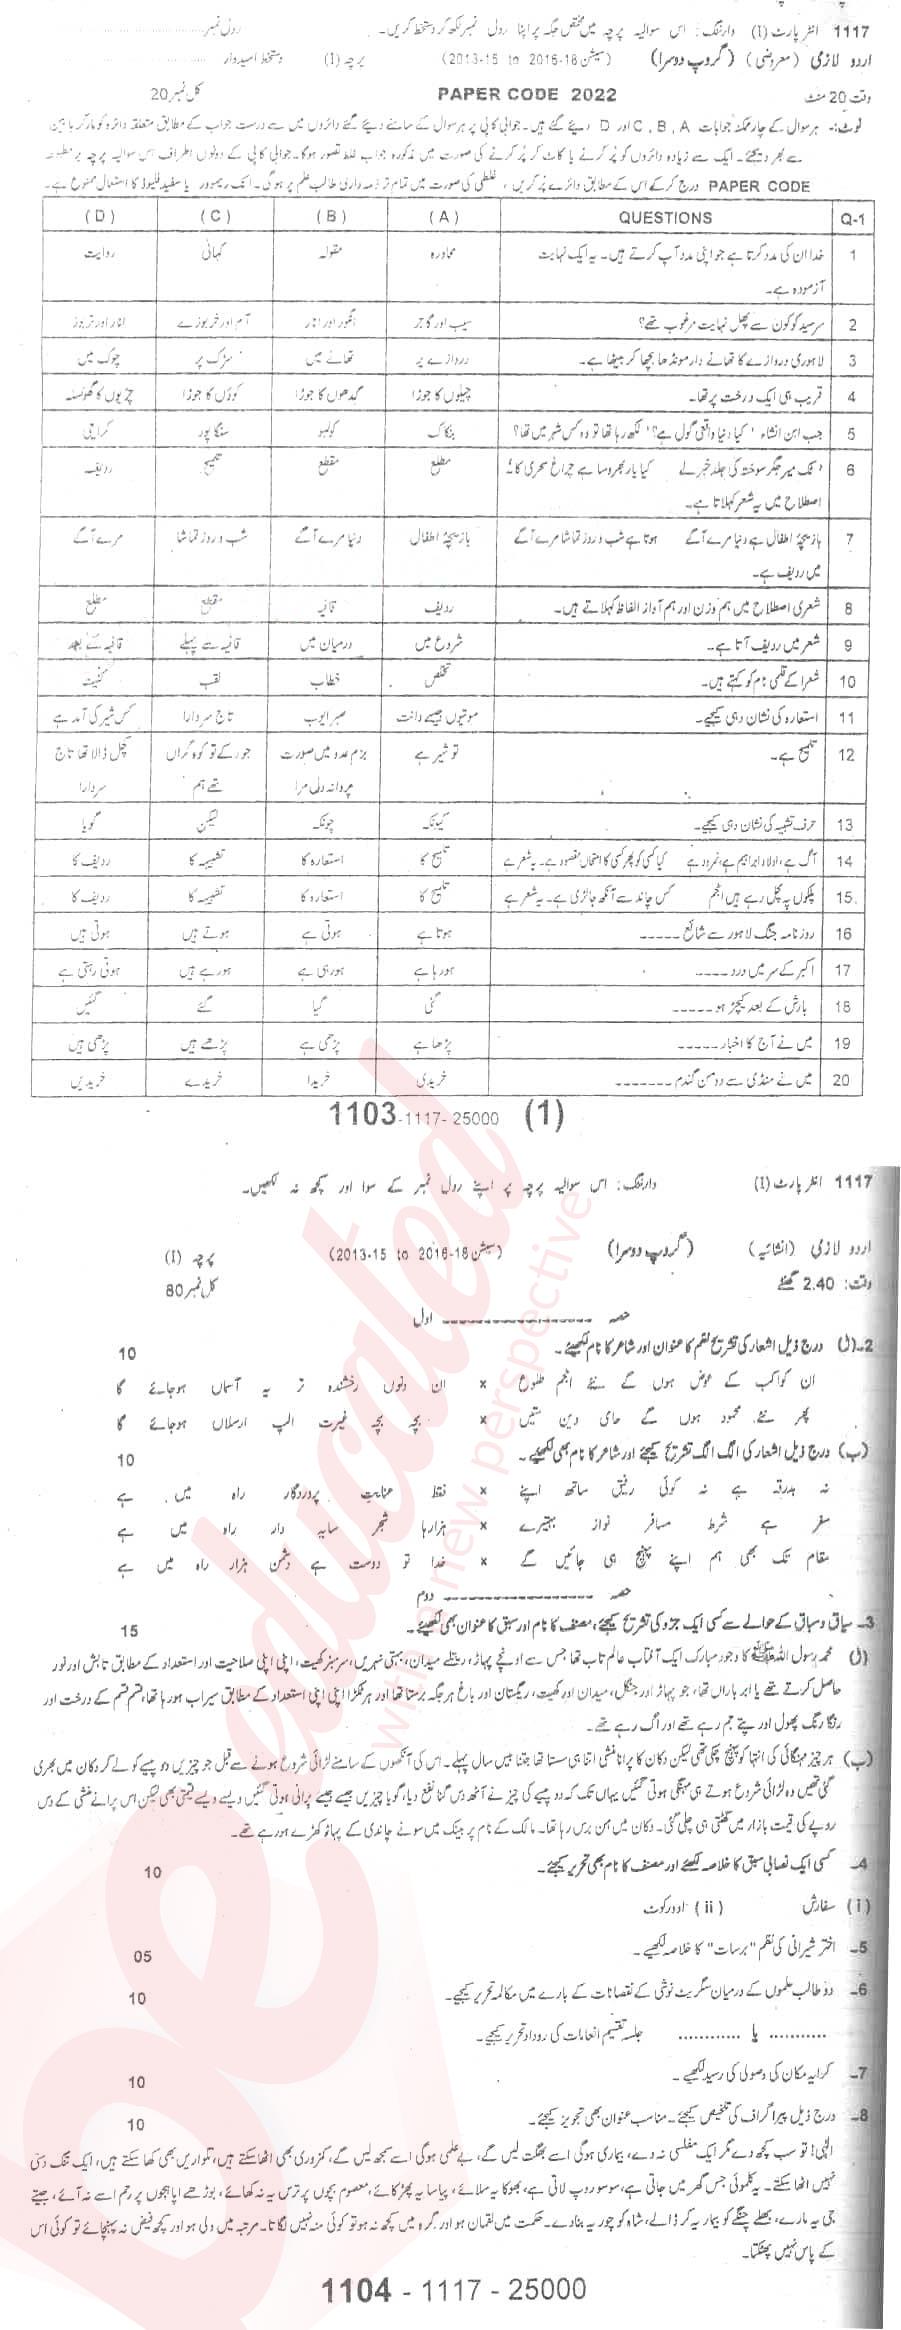 1117 انٹر پارٹ (I) وارننگ: اس سوالیہ پرچہ میں مختص جگہ پر اپنا رول نمبر لکھ کر دستخط کریں۔ رول نمبر
اردو لازمی (معروضی) (گروپ دوسرا) (سیشن 2013-15 to 2016-18) پرچہ (I) دستخط امیدوار
وقت 20 منٹ PAPER CODE 2022 کل نمبر 20
نوٹ:- ہر سوال کے چار ممکنہ جوابات A, B, C اور D دیئے گئے ہیں۔ جوابی کاپی پر ہر سوال کے سامنے دیئے گئے دائروں میں سے درست جواب کے مطابق متعلقہ دائرہ کو مارکر یا پین
سے بھر دیجئے۔ ایک سے زیادہ دائروں کو پُر کرنے یا کاٹ کر پُر کرنے کی صورت میں مذکورہ جواب غلط تصور ہوگا۔ جوابی کاپی کے دونوں اطراف اس سوالیہ پرچہ پر مطبوعہ
PAPER CODE درج کر کے اس کے مطابق دائرے پُر کریں، غلطی کی صورت میں تمام تر ذمہ داری طالب علم پر ہوگی۔ انک ریموور یا سفید فلیوڈ کا استعمال ممنوع ہے۔
Q-1 QUESTIONS (A) (B) (C) (D)
1 خدا ان کی مدد کرتا ہے جو اپنی مدد آپ کرتے ہیں۔ یہ ایک نہایت محاورہ مقولہ کہانی روایت
آزمودہ ہے۔
2 سرسید کو کون سے پھل نہایت مرغوب تھے؟ سیب اور گاجر انگور اور انار آم اور خربوزے انار اور تربوز
3 لاہوری دروازے کا تھانے دار مونڈھا بچھا کر بیٹھا ہے۔ دروازے پر تھانے میں سڑک پر چوک میں
4 قریب ہی ایک درخت پر تھا۔ چیلوں کا جوڑا گدھوں کا جوڑا کوؤں کا جوڑا چڑیوں کا گھونسلہ
5 جب ابن انشاء ' کیا دنیا واقعی گول ہے؟' لکھ رہا تھا تو وہ کس شہر میں تھا؟ بنکاک کولمبو سنگاپور کراچی
6 ' ٹک میر جگر سوختہ کی جلد خبر لے کیا یار بھروسا ہے چراغ سحری کا' مطلع مقطع تلمیح ردیف
اصطلاح میں یہ شعر کہلاتا ہے۔
7 بازیچۂ اطفال ہے دنیا مرے آگے ہوتا ہے شب و روز تماشا مرے آگے بازیچۂ اطفال دنیا مرے آگے شب و روز تماشا مرے آگے
میں ردیف ہے۔
8 شعری اصطلاح میں ہم وزن اور ہم آواز الفاظ کہلاتے ہیں۔ ردیف قافیہ مقطع مطلع
9 شعر میں ردیف آتا ہے۔ شروع میں درمیان میں قافیہ سے پہلے قافیہ کے بعد
10 شعرا کے قلمی نام کو کہتے ہیں۔ تخلص خطاب لقب کنیت
11 استعارہ کی نشان دہی کیجیے۔ موتیوں جیسے دانت صبر ایوب تاج سردارا کس شیر کی آمد ہے
12 تلمیح ہے۔ تو شیر ہے بزم عدو میں صورت جو رکے تو کوہ گراں کچل ڈالا تھا تاج
پروانہ دل مرا تھے ہم سردارا
13 حرف تشبیہ کی نشان دہی کیجیے۔ کیونکہ چونکہ لیکن گویا
14 آگ ہے، اولاد ابراہیم ہے، نمرود ہے کیا کسی کو پھر کسی کا امتحاں مقصود ہے۔ یہ شعر ہے تلمیح کا استعارہ کا تشبیہہ کا ردیف کا
15. پلکوں پہ مچل رہے ہیں انجم کس چاند سے آنکھ جا لڑی ہے۔ یہ شعر ہے تلمیح کا استعارہ کا تشبیہہ کا ردیف کا
16 روزنامہ جنگ لاہور سے شائع ----- ہوتا ہے ہوتی ہے ہوتے ہیں ہوتی ہیں
17 اکبر کے سر میں درد ---- ہورہا ہے ہورہی ہے ہورہے ہیں ہوتی رہتی ہے
18 بارش کے بعد کیچڑ ہو ----- گئی گیا گئے گئیں
19 میں نے آج کا اخبار ----- پڑھا ہے پڑھی ہے پڑھے ہیں پڑھی ہیں
20 میں نے منڈی سے دو من گندم ------- خریدی خریدا خریدے خریدیں
1103-1117-25000 (1)
1117 انٹر پارٹ (I) وارننگ: اس سوالیہ پرچہ پر اپنے رول نمبر کے سوا اور کچھ نہ لکھیں۔
اردو لازمی (انشائیہ) (گروپ دوسرا) (سیشن 2013-15 to 2016-18) پرچہ (I)
وقت: 2.40 گھنٹے کل نمبر 80
حصہ ------------------ اول
2- (ل) درج ذیل اشعار کی تشریح نظم کا عنوان اور شاعر کا نام لکھیئے۔ 10
ان کواکب کے عوض ہوں گے نئے انجم طلوع × ان دنوں رخشندہ تر یہ آسماں ہوجائے گا
پھر نئے محمود ہوں گے حامی دین متیں × بچہ بچہ غیرت الپ ارسلاں ہوجائے گا
(ب) درج ذیل اشعار کی الگ الگ تشریح کیجئے اور شاعر کا نام بھی لکھیے۔ 10
نہ بدرقہ ہے نہ کوئی رفیق ساتھ اپنے × فقط عنایت پروردگار راہ میں ہے
سفر ہے شرط مسافر نواز بہتیرے × ہزارہا شجر سایہ دار راہ میں ہے
مقام تک بھی ہم اپنے پہنچ ہی جائیں گے × خدا تو دوست ہے دشمن ہزار راہ میں ہے
حصہ ------------------ دوم
3- سیاق و سباق کے حوالے سے کسی ایک جزو کی تشریح کیجئے، مصنف کا نام اور سبق کا عنوان بھی لکھیئے۔ 15
(ل) محمد رسول اللہ ﷺ کا وجود مبارک ایک آفتاب عالم تاب تھا جس سے اونچے پہاڑ، ریتلے میدان، بہتی نہریں، سرسبز کھیت، اپنی اپنی صلاحیت اور استعداد کے مطابق تابش اور نور
حاصل کرتے تھے یا ابر باراں تھا، جو پہاڑ اور جنگل، میدان اور کھیت، ریگستان اور باغ ہر جگہ برستا تھا اور ہر ٹکڑا اپنی اپنی استعداد کے مطابق سیراب ہو رہا تھا، قسم قسم کے درخت اور
رنگا رنگ پھول اور پتے جم رہے تھے اور اگ رہے تھے۔
(ب) ہر چیز مہنگائی کی انتہا کو پہنچ چکی تھی لیکن دکان کا پرانا منشی اتنا ہی سستا تھا جتنا بیس سال پہلے۔ اس کی آنکھوں کے سامنے لڑائی شروع ہونے سے قبل جو چیزیں دو پیسے کو لے کر دکان میں بھری
گئی تھیں وہ لڑائی شروع ہوتے ہی مہنگی ہوتی گئیں یہاں تک کہ دو پیسے کی چیز نے آٹھ دس گنا نفع دیا، گویا چیزیں جیسے جیسے پرانی ہوتی گئیں ویسے ویسے قیمتی بھی لیکن اس پرانے منشی کے دس
روپے کی قیمت بازار میں گھٹتی ہی چلی گئی۔ دکان میں ہن برس رہا تھا۔ مالک کے نام پر بینک میں سونے چاندی کے پہاڑ کھڑے ہو رہے تھے۔
4- کسی ایک نصابی سبق کا خلاصہ لکھئے اور مصنف کا نام بھی تحریر کیجئے۔ 10
(i) سفارش (ii) اوور کوٹ
5- اختر شیرانی کی نظم "برسات" کا خلاصہ لکھیے۔ 05
6- دو طالب علموں کے درمیان سگریٹ نوشی کے نقصانات کے بارے میں مکالمہ تحریر کیجیے۔ 10
........... یا ........... جلسہ تقسیم انعامات کی روداد تحریر کیجیے۔
7- کرایہ مکان کی وصولی کی رسید لکھیے۔ 10
8- درج ذیل پیراگراف کی تلخیص کیجئے۔ مناسب عنوان بھی تجویز کیجئے۔ 10
الٰہی! تو سب کچھ دے مگر ایک مفلسی نہ دے، بیماری ہوگی اسے بھگت لیں گے، بے علمی ہوگی اسے سمجھ لیں گے، کمزوری بھی اٹھا سکتے ہیں، تلواریں بھی کھا سکتے ہیں، ایک تنگ دستی
نہیں اٹھا سکتے۔ یہ کلموئی جس گھر میں جاتی ہے، سو سو روپ لاتی ہے، بھوکا یہ سلائے، پیاسا یہ پھڑکائے، معصوم بچوں پر ترس یہ نہ کھائے، بوڑھے اپاہجوں پر رحم اسے نہ آئے، جیتے
جی یہ مارے، بھلے چنگے کو بیمار یہ کر ڈالے، شاہ کو چور یہ بنا دے۔ حکمت میں لقمان ہو اور گرہ میں کچھ نہ ہو تو کوئی منہ نہیں لگاتا۔ مرتبہ میں ولی ہو اور کچھ فیض نہ پہنچائے تو کوئی اس
کے پاس نہیں پھٹکتا۔
1104 - 1117 - 25000
beeducated
with a new perspective